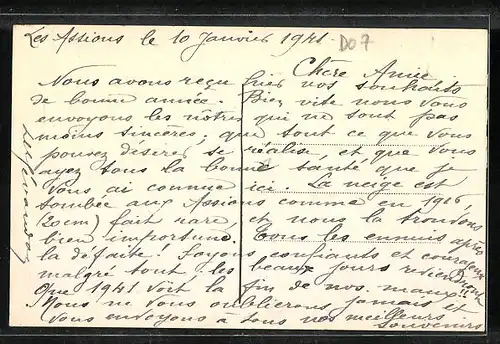 Les Assions le 10 Janvier 1941
DO7
Chère Amie
Nous avons reçu hier vos souhaits
de bonne année. Bien vite nous vous
envoyons les nôtres qui ne sont pas
moins sincères; que tout ce que vous
pouvez désirer se réalise et que vous
ayez tous la bonne santé que je
vous ai connue ici. La neige est
tombée aux Assions comme en 1916
(20cm) fait rare, et nous la trouvons
bien importune. Tous les ennuis après
la défaite! Soyons confiants et courageux
malgré tout les beaux jours reviendront
Que 1941 voit la fin de nos maux!!
Nous ne vous oublierons jamais et
vous envoyons à tous nos meilleurs
souvenirs